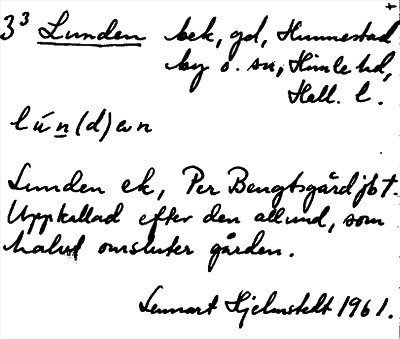 3³ Lunden bek, gd, Hunnestad
by o. sn, Himle hd,
Hall. l.
lún(d)ən
Lunden ek, Per Bengtsgård jbt.
Uppkallad efter den allund, som
halvt omsluter gården.
Lennart Hjelmstedt 1961.